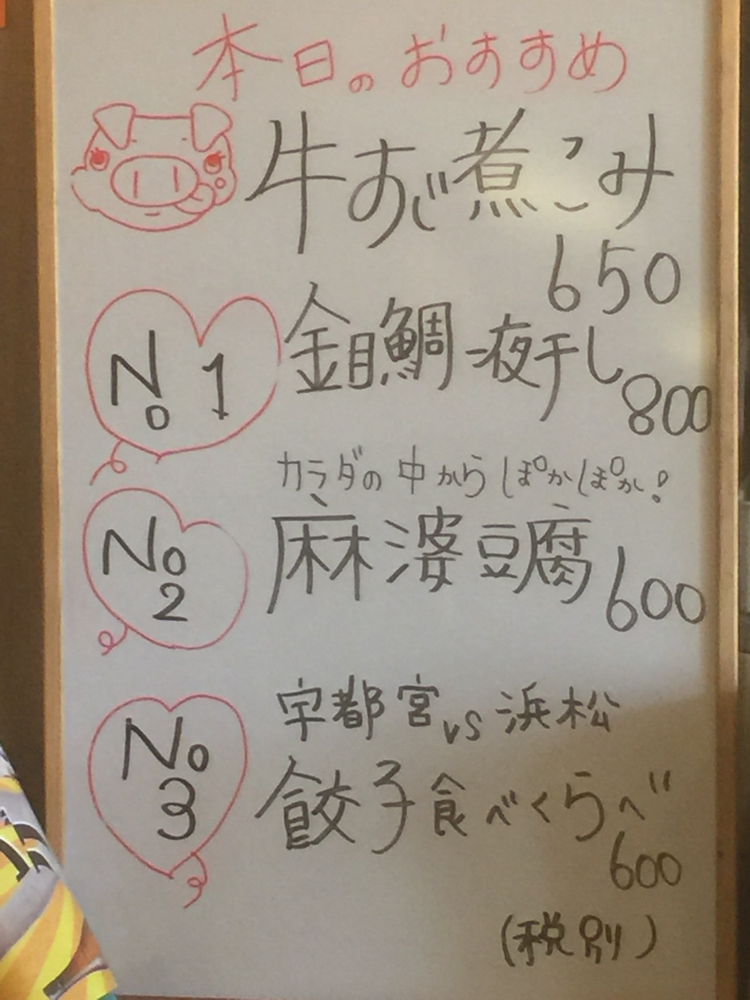 本日のおすすめ
牛すじ煮こみ
650
No 1
金目鯛一夜干し
800
カラダの中からぽかぽか!
No 2
麻婆豆腐 600
宇都宮vs浜松
No 3
餃子食べくらべ
600
(税別)